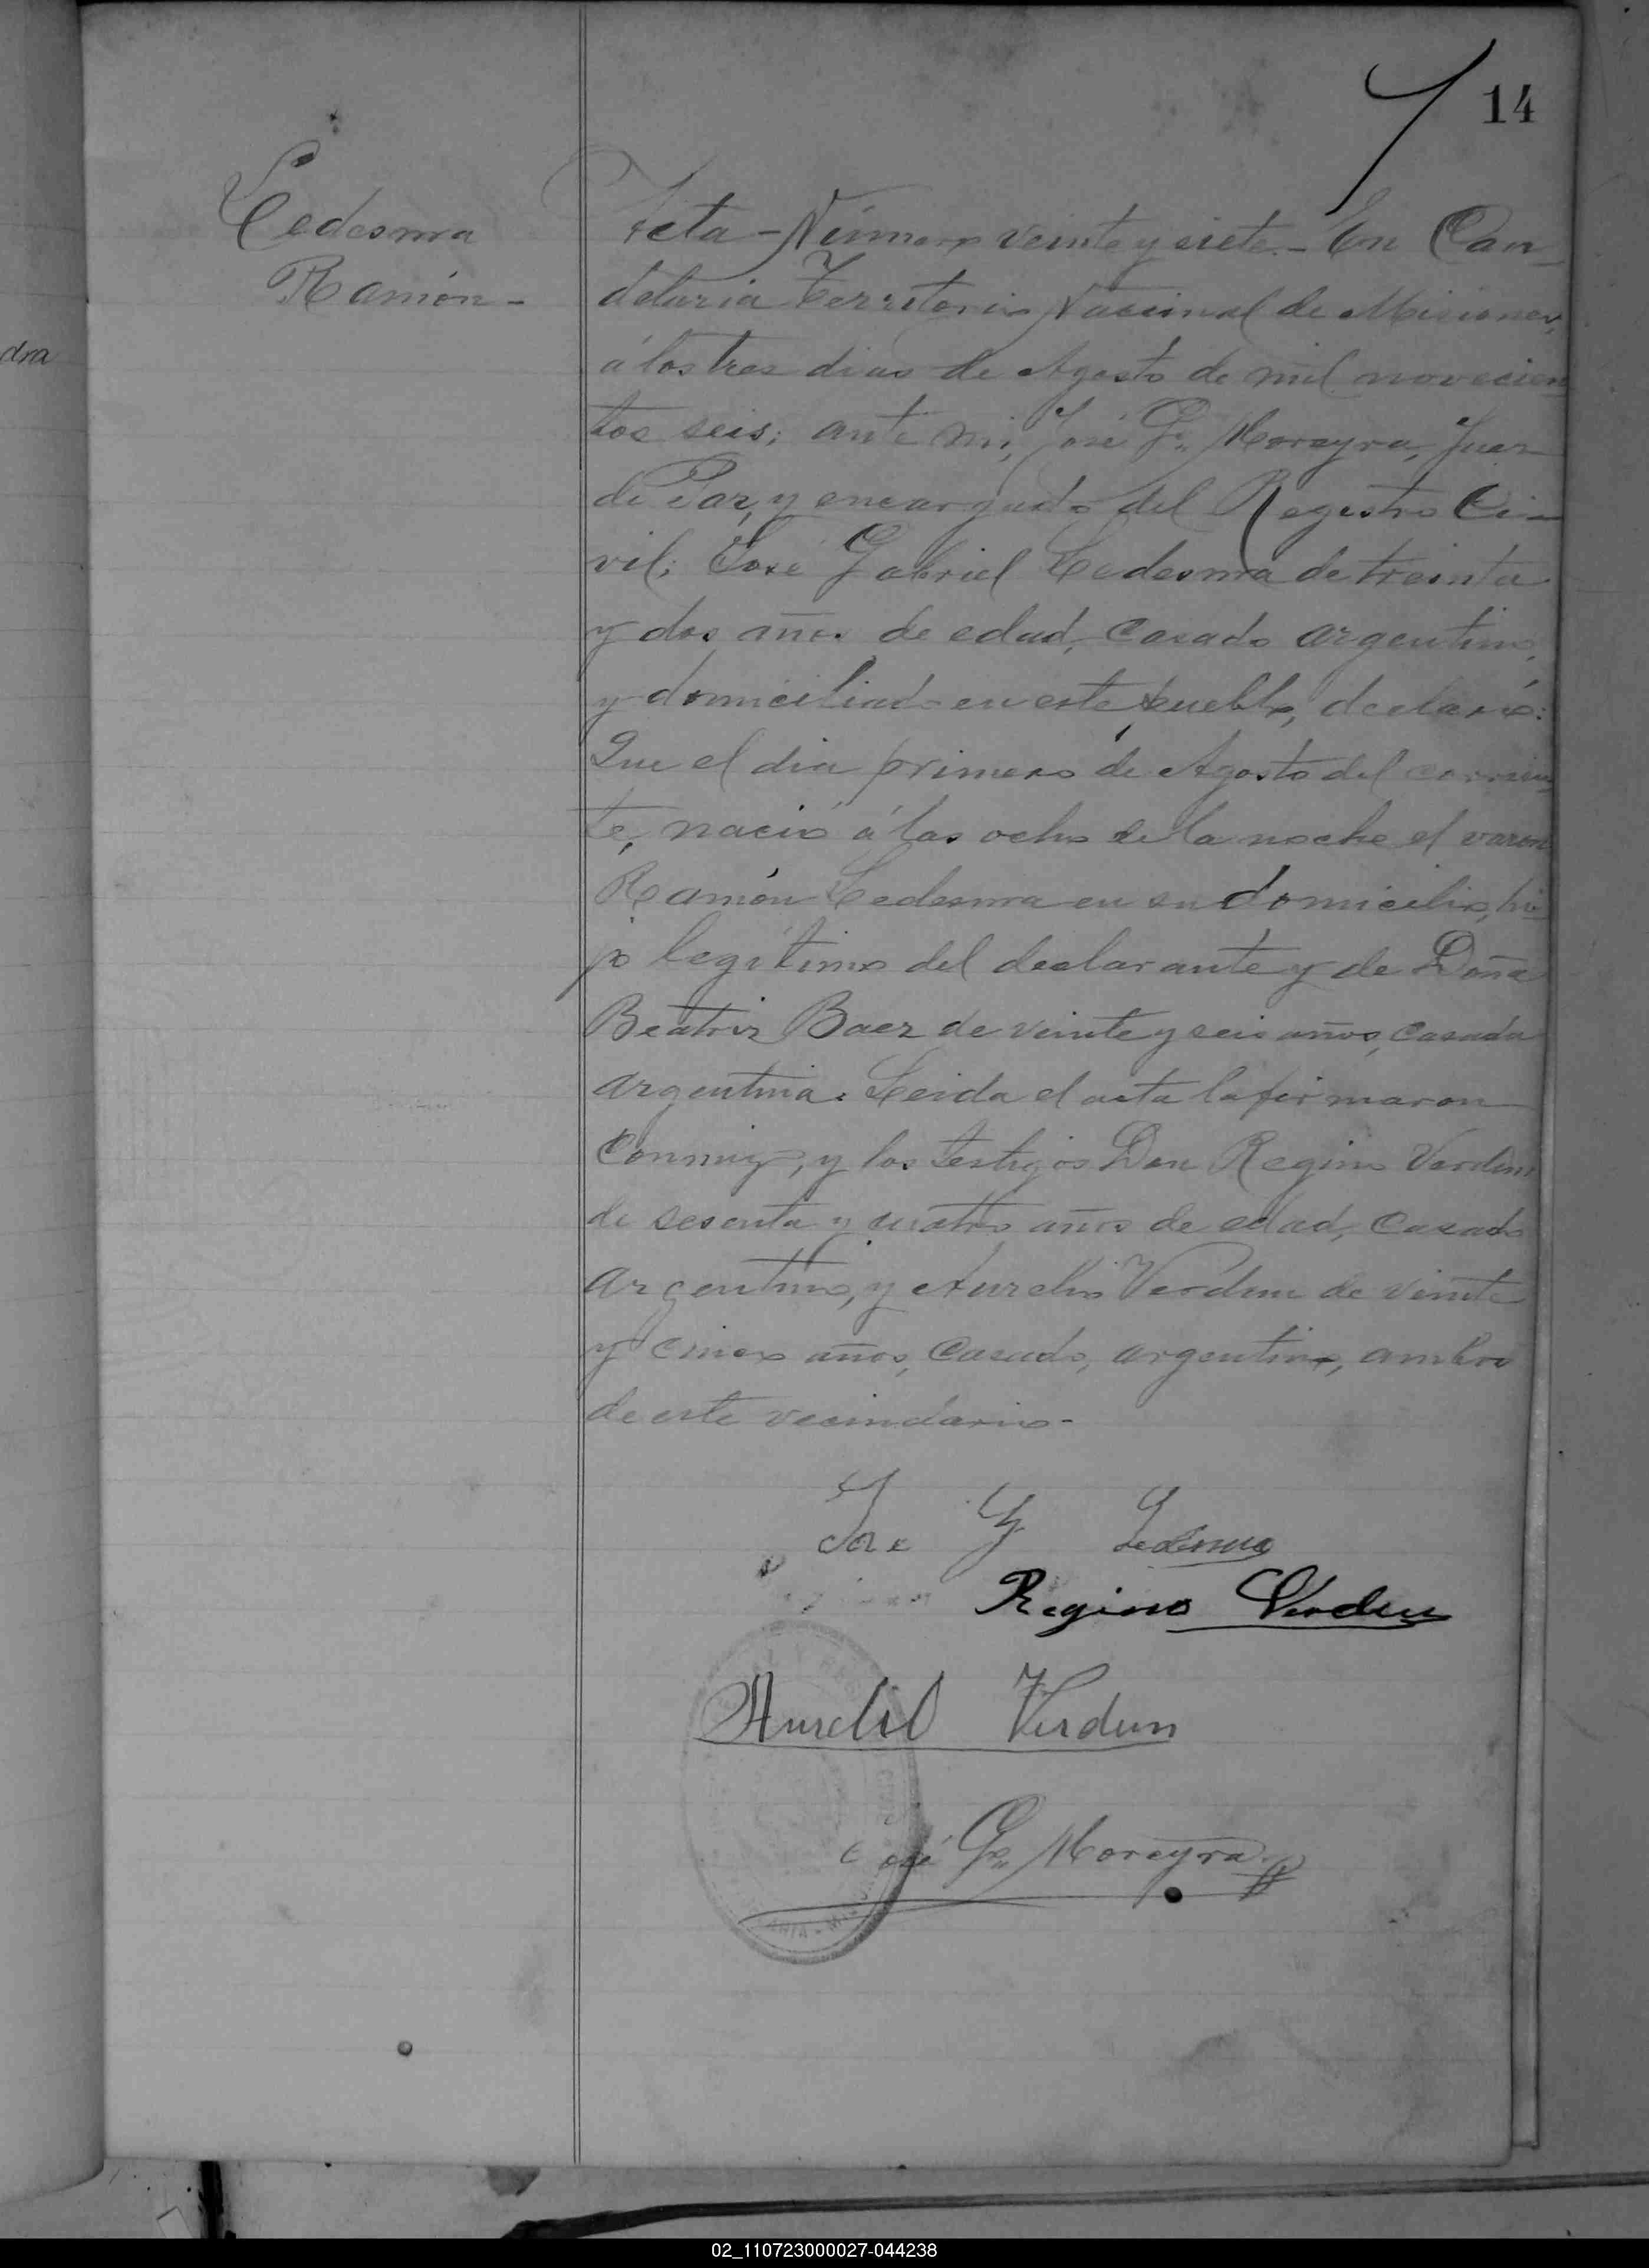 14
Ledesma
Ramón-
dra
Acta-Número veinte y siete.- En Can
delaria Territorio Nacional de Misiones,
á los tres dias de Agosto de mil novecien
tos seis; ante mi, José G. Moreyra, Juez
de Paz, y encargado del Registro Ci-
vil; José Gabriel Ledesma de treinta
y dos años de edad, casado argentino,
y domiciliado en este pueblo, declaró:
Que el dia primero de Agosto del corrien
te, nació á las ocho de la noche el varon
Ramón Ledesma en su domicilio, hi
jo legítimo del declarante y de Doña
Beatriz Baez de veinte y seis años, casada
argentina. Leida el acta la firmaron
conmigo, y los testigos Don Regino Verdun
de sesenta y cuatro años de edad, casado
argentino, y Aurelio Verdun de veinte
y cinco años, casado, argentino, ambos
de este vecindario-
José G Ledesma
Regino Verdun
Aurelio Verdun
José G. Moreyra
02_110723000027-044238